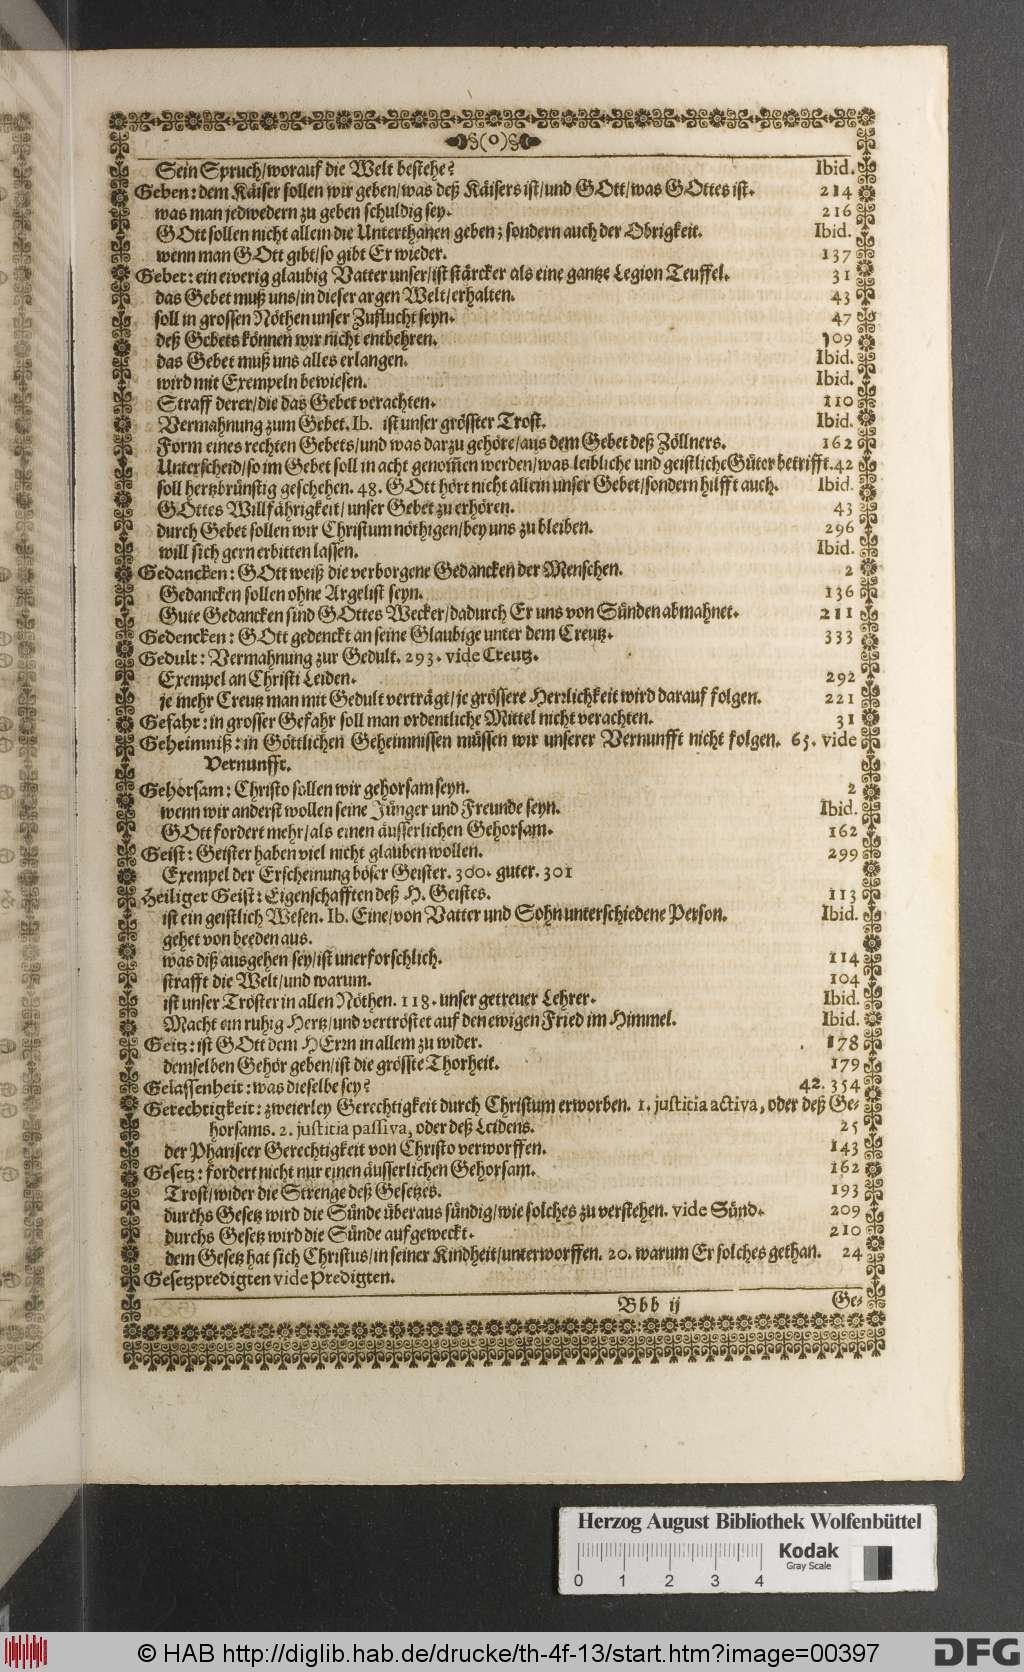 (o)
Sein Spruch/worauf die Welt bestehe? Ibid.
Geben: dem Käiser sollen wir geben/was deß Käisers ist/und GOtt/was GOttes ist. 214
was man jedwedern zu geben schuldig sey. 216
GOtt sollen nicht allein die Unterthanen geben; sondern auch der Obrigkeit. Ibid.
wenn man GOtt gibt/so gibt Er wieder. 137
Gebet: ein eiverig glaubig Vatter unser/ist stärcker als eine gantze Legion Teuffel. 31
das Gebet muß uns/in dieser argen Welt/erhalten. 43
soll in grossen Nöthen unser Zuflucht seyn. 47
deß Gebets können wir nicht entbehren. 109
das Gebet muß uns alles erlangen. Ibid.
wird mit Exempeln bewiesen. Ibid.
Straff derer/die das Gebet verachten. 110
Vermahnung zum Gebet. Ib. ist unser grösster Trost. Ibid.
Form eines rechten Gebets/und was darzu gehöre/aus dem Gebet deß Zöllners. 162
Unterscheid/so im Gebet soll in acht genom̃en werden/was leibliche und geistliche Güter betrifft. 42
soll hertzbrünstig geschehen. 48. GOtt hört nicht allein unser Gebet/sondern hilfft auch. Ibid.
GOttes Willfährigkeit/unser Gebet zu erhören. 43
durch Gebet sollen wir Christum nöthigen/bey uns zu bleiben. 296
will sich gern erbitten lassen. Ibid.
Gedancken: GOtt weiß die verborgene Gedancken der Menschen. 2
Gedancken sollen ohne Argelist seyn. 136
Gute Gedancken sind GOttes Wecker/dadurch Er uns von Sünden abmahnet. 211
Gedencken: GOtt gedenckt an seine Glaubige unter dem Creutz. 333
Gedult: Vermahnung zur Gedult. 293. vide Creutz.
Exempel an Christi Leiden. 292
je mehr Creutz man mit Gedult verträgt/je grössere Herrlichkeit wird darauf folgen. 221
Gefahr: in grosser Gefahr soll man ordentliche Mittel nicht verachten. 31
Geheimniß: in Göttlichen Geheimnissen müssen wir unserer Vernunfft nicht folgen. 65. vide
Vernunfft.
Gehorsam: Christo sollen wir gehorsam seyn. 2
wenn wir anderst wollen seine Jünger und Freunde seyn. Ibid.
GOtt fordert mehr/als einen äusserlichen Gehorsam. 162
Geist: Geister haben viel nicht glauben wollen. 299
Exempel der Erscheinung böser Geister. 300. guter. 301
Heiliger Geist: Eigenschafften deß H. Geistes. 113
ist ein geistlich Wesen. Ib. Eine/von Vatter und Sohn unterschiedene Person. Ibid.
gehet von beeden aus.
was diß ausgehen sey/ist unerforschlich. 114
strafft die Welt/und warum. 104
ist unser Tröster in allen Nöthen. 118. unser getreuer Lehrer. Ibid.
Macht ein ruhig Hertz/und vertröstet auf den ewigen Fried im Himmel. Ibid.
Geitz: ist GOtt dem HErrn in allem zu wider. 178
demselben Gehör geben/ist die grösste Thorheit. 179
Gelassenheit: was dieselbe sey? 42. 354
Gerechtigkeit: zweierley Gerechtigkeit durch Christum erworben. 1. justitia activa, oder deß Ge-
horsams. 2. justitia passiva, oder deß Leidens. 25
der Phariseer Gerechtigkeit von Christo verworffen. 143
Gesetz: fordert nicht nur einen äusserlichen Gehorsam. 162
Trost/wider die Strenge deß Gesetzes. 193
durchs Gesetz wird die Sünde überaus sündig/wie solches zu verstehen. vide Sünd. 209
durchs Gesetz wird die Sünde aufgeweckt. 210
dem Gesetz hat sich Christus/in seiner Kindheit/unterworffen. 20. warum Er solches gethan. 24
Gesetzpredigten vide Predigten.
Bbb ij Ge-
Herzog August Bibliothek Wolfenbüttel
Kodak
Gray Scale
0 1 2 3 4
© HAB http://diglib.hab.de/drucke/th-4f-13/start.htm?image=00397
DFG